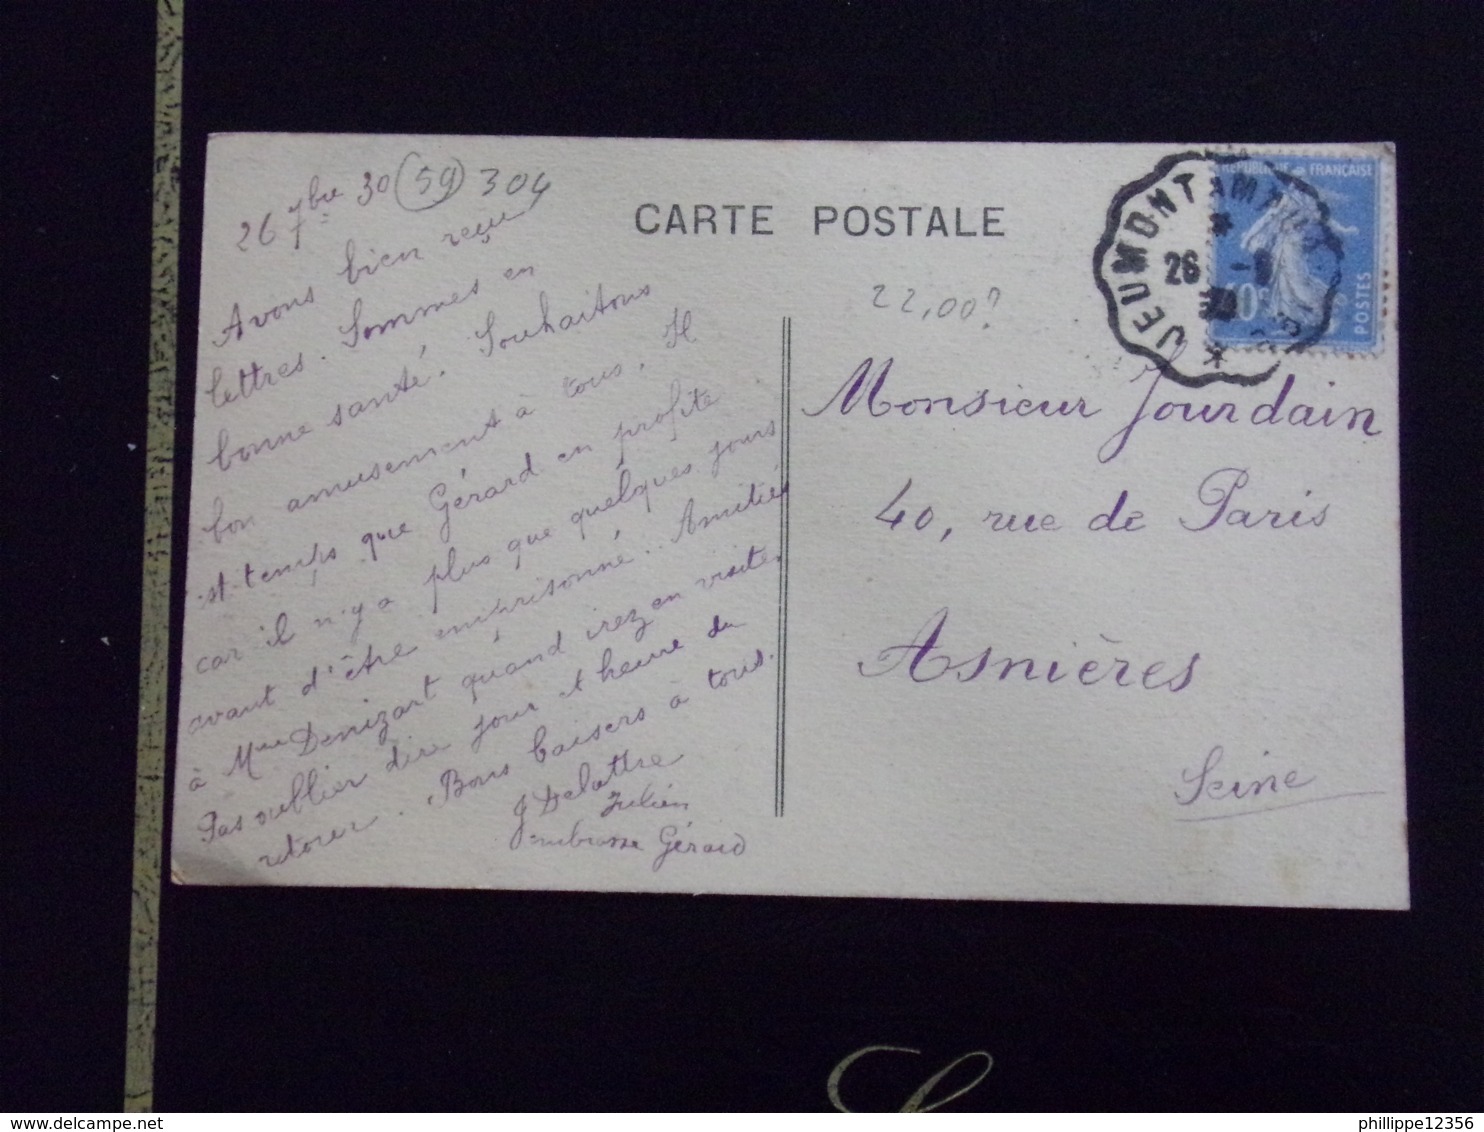 26 7bre 30 (59) 304
Avons bien reçu
lettres. Sommes en
bonne santé. Souhaitons
bon amusement à tous, Il
st temps que Gérard en profite
car il n'y a plus que quelques jours
avant d'être emprisonné.. Amitiés
à Mme Denizart quand irez en visite.
Pas oublier dire jour et heure du
retour. Bons baisers à tous.
J Delattre
Julien
embrasse Gérard
CARTE POSTALE
22,00?
Monsieur Jourdain
40, rue de Paris
Asnières
Seine
RÉPUBLIQUE FRANÇAISE
40c
POSTES
JEUMONT A
26 -9
30
philippe12356